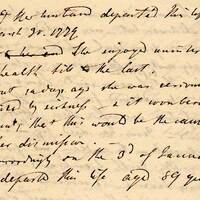 & her husband departed this life
March 30. 1779
She enjoyed uninter
health till the last.
but in days ago she was seriously
by sickness - it wonder
, that this would be the cause
her dismission.
accordingly on the 3d of January
departed this life aged 89 ye